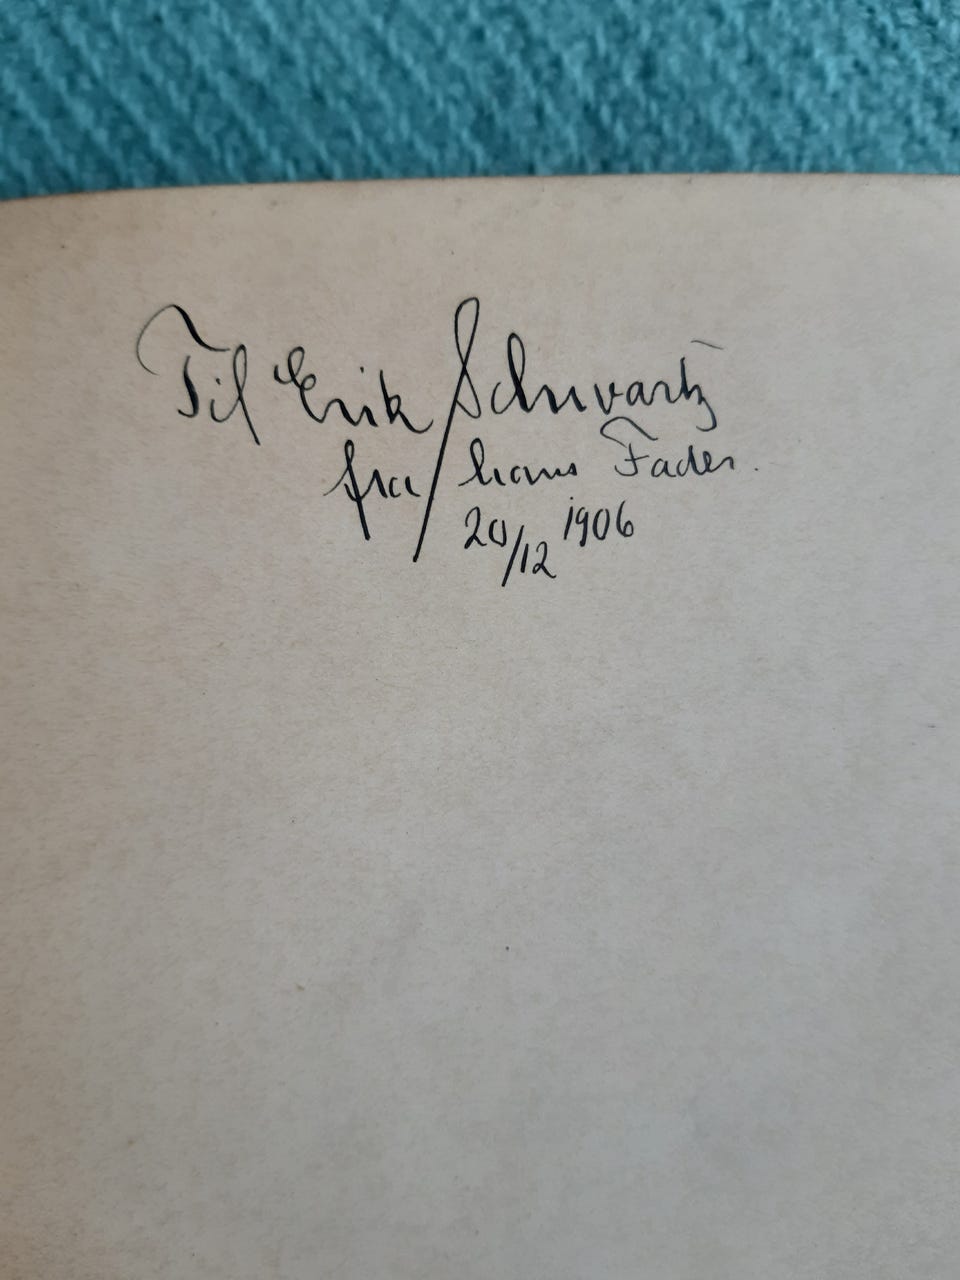 Til Erik Schwartz
fra hans Fader.
20/12 1906